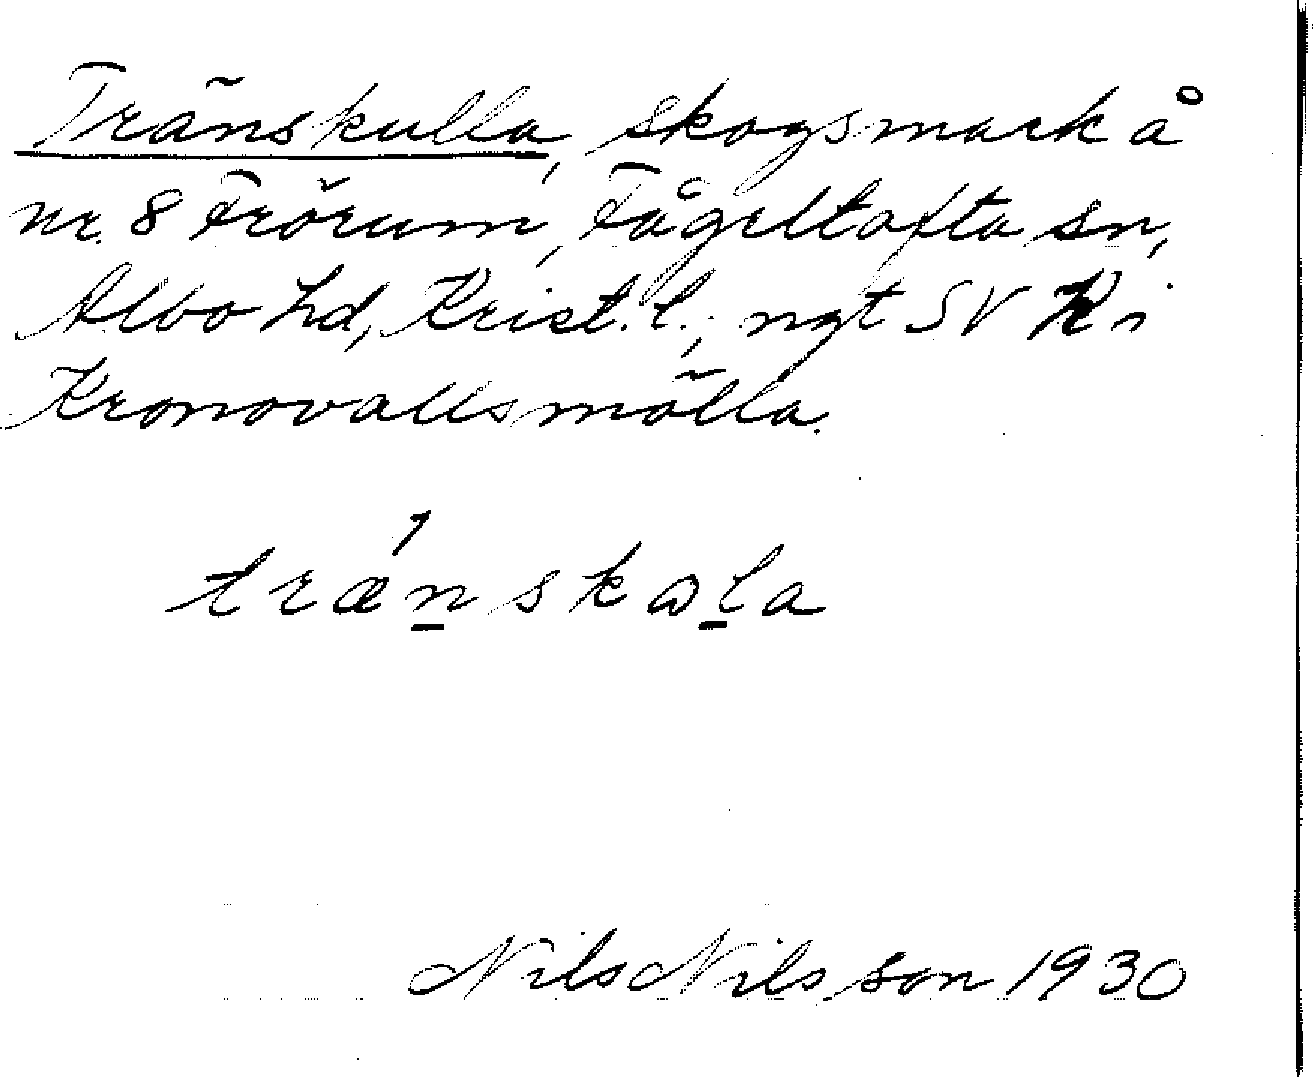 Tränskulla, skogsmark å
nr. 8 Frörum, Fågeltofta sn,
Albo hd, Krist. l.; ngt SV
Kronovallsmölla.
trænskɷla
Nils Nilsson 1930